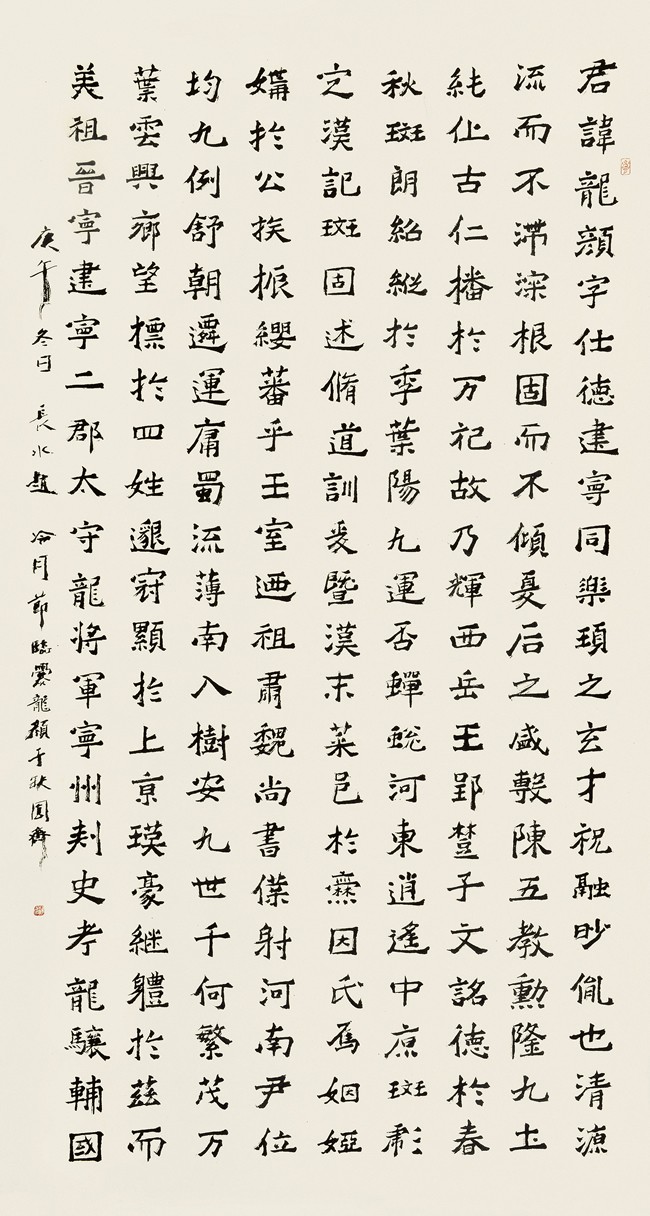 君諱龍顔字仕德建寧同樂頊之玄才祝融眇胤也清源
流而不滯深根固而不傾夏后之盛敷陳五教勳隆九土
純化古仁播於万祀故乃輝西岳王郢楚子文詺德於春
秋斑朗紹縱於季葉陽九運否蟬蛻河東逍遙中原斑彪
定漢記斑固述脩道訓爰暨漢末菜邑於爨因氏焉姻婭
媾於公族振纓蕃乎王室迺祖肅魏尚書僕射河南尹位
均九例舒朝遷運庸蜀流薄南入樹安九世千何繁茂万
葉雲興鄉望標於四姓邈冠顯於上京瑛豪継體於茲而
美祖晉寧建寧二郡太守龍將軍寧州刺史考龍驤輔國
庚午冬日 長水趙冷月節臨爨龍顔于缺圓齋